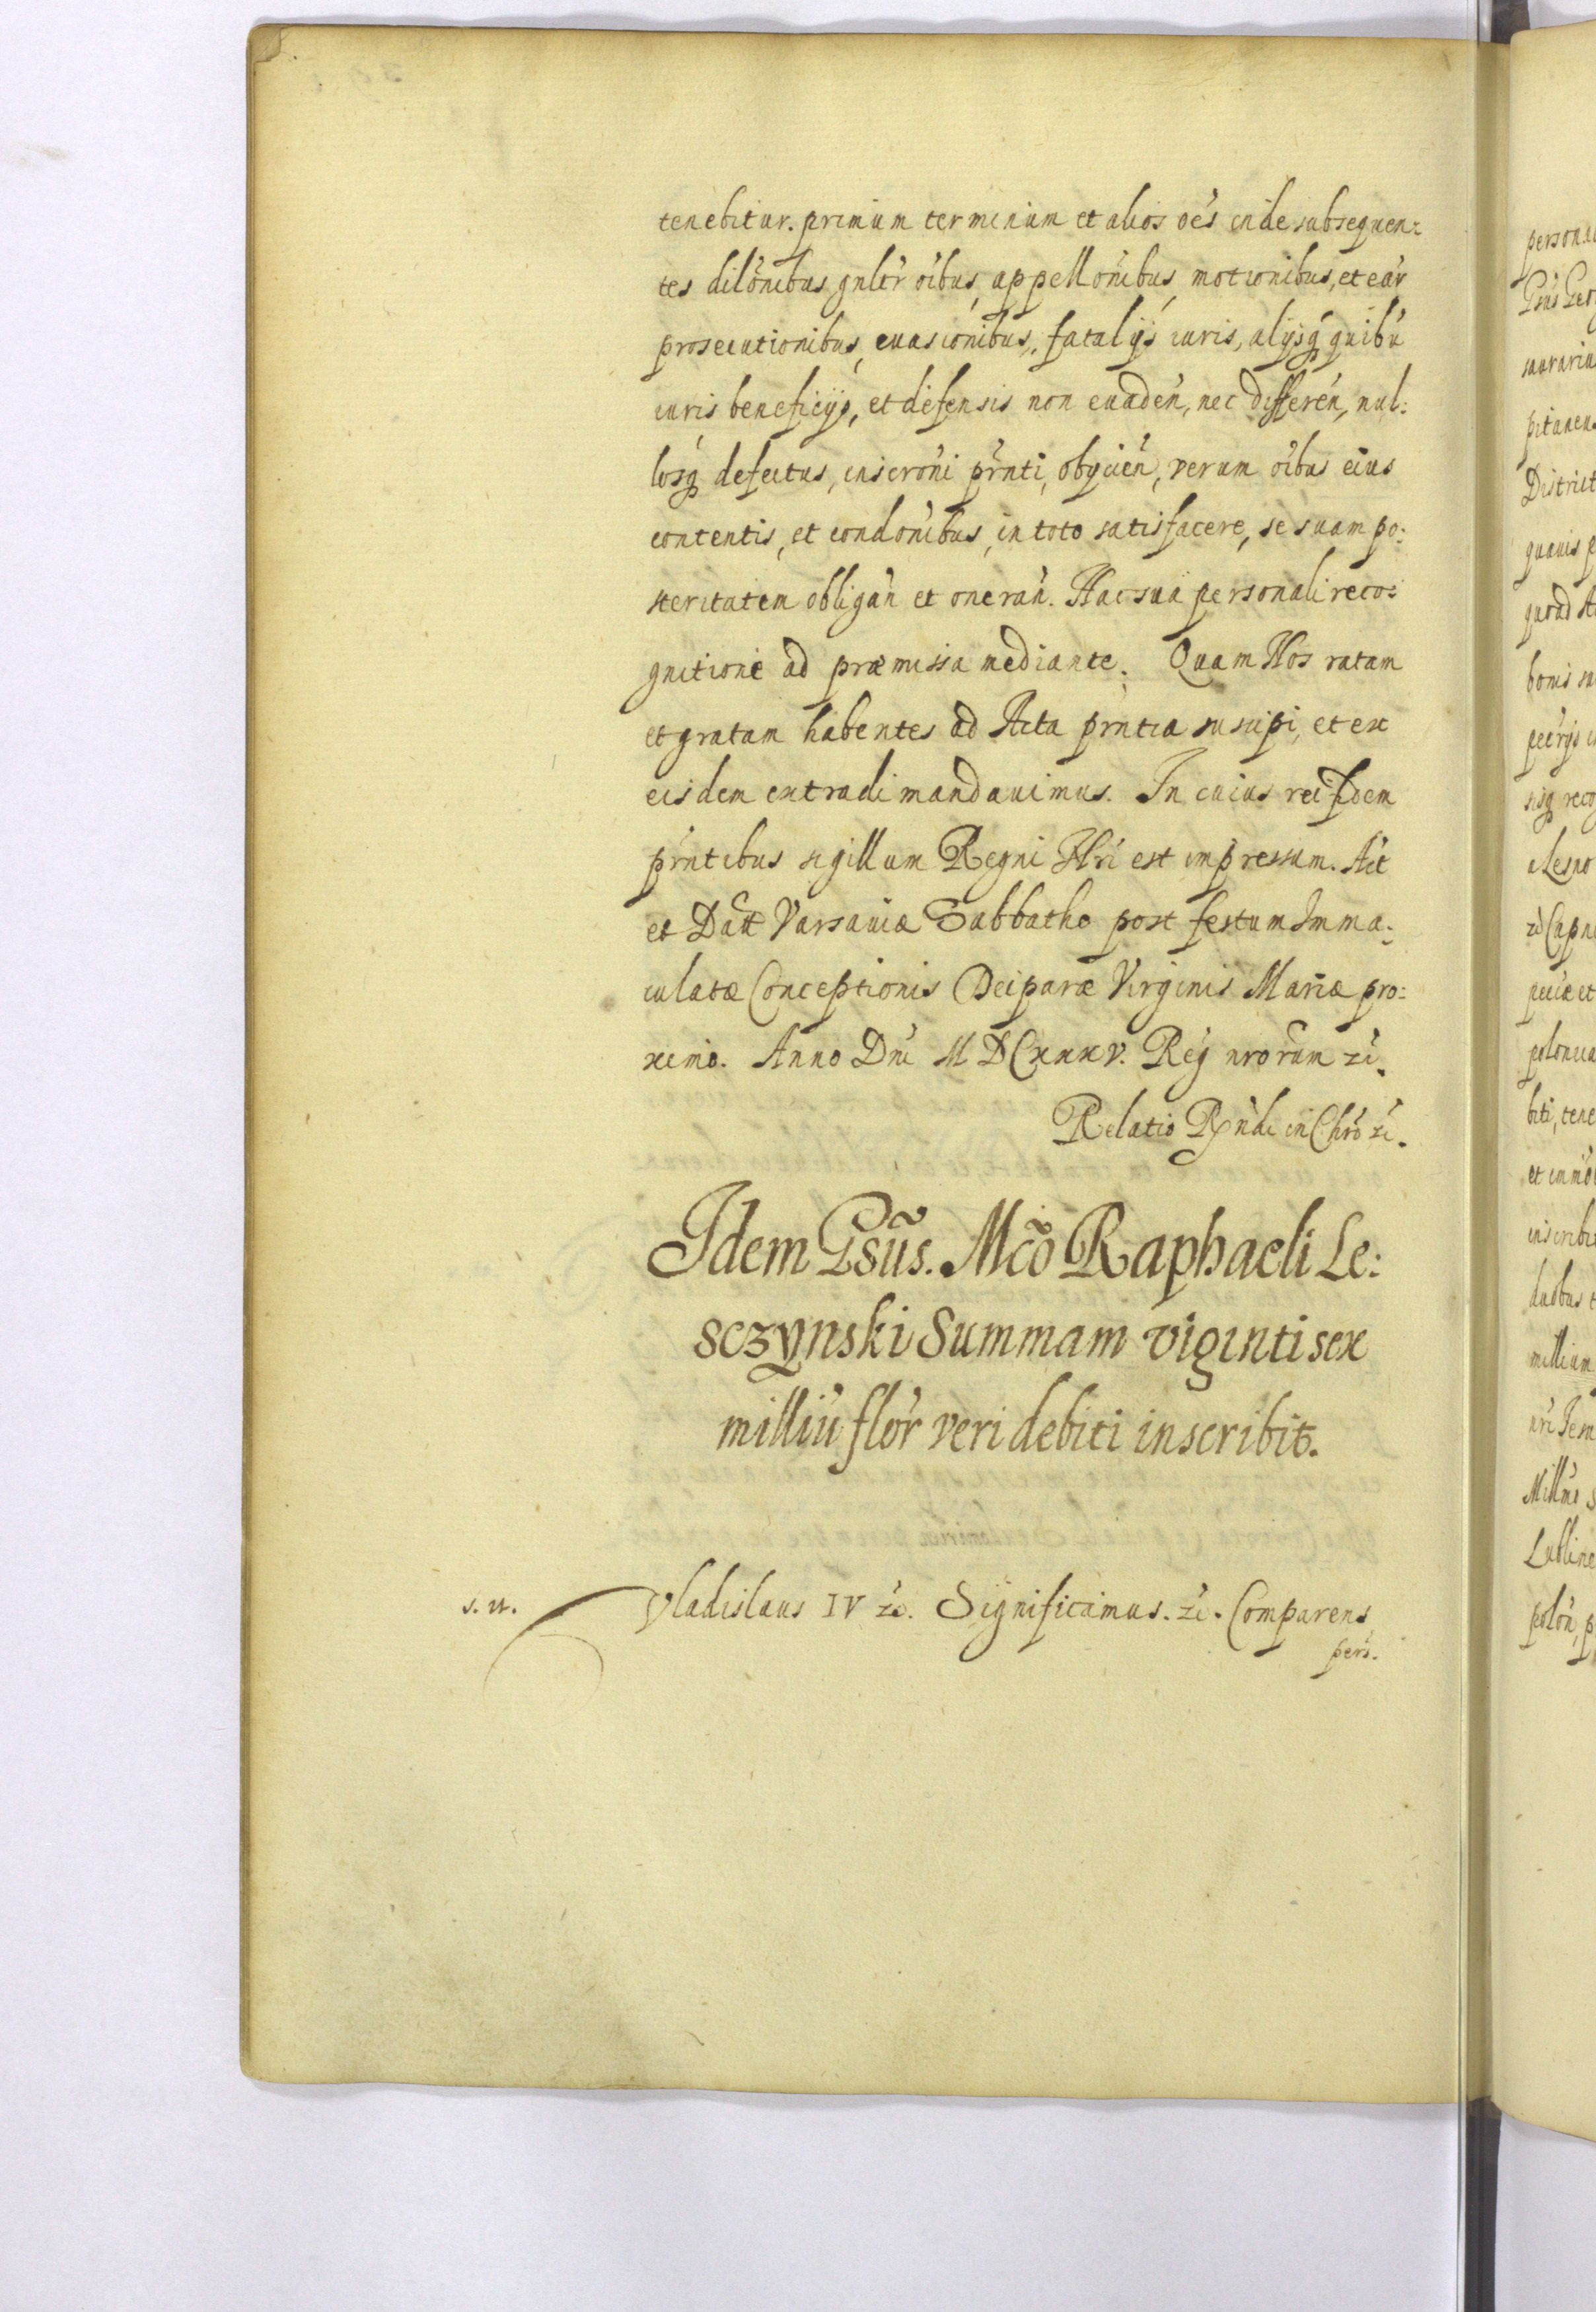 tenebitur. primum terminum et alios oe͂s inde subsequen:
tes dilõnibus gnl̃tr õibus, appellõnibus, motionibus, et ear̃
prosecutionibus, euasionibus, fatalijs iuris, alijsq̃ quibũ
iuris beneficijs, et defensis non euadeñ, nec differeñ, nul:
losq̃ defectus, inscrõni pr̃nti, obijcieñ, verum õibus eius
contentis, et condõnibus, in toto satisfacere, se suam po:
steritatem obligañ et onerañ. Hac sua personali reco:
gnitione ad præmissa mediante. Quam Nos ratam
et gratam habentes ad Acta prñtia suscipi, et ex
eisdem extradi mandauimus. In cuius rei fidem
prñtibus sigillum Regni Nr̃i est impressum. Act̃
et Datt̃ Varsauiæ Sabbatho post festum Imma:
culatæ Conceptionis Deiparæ Virginis Mariæ pro:
ximo. Anno Dñi MDCxxxv. Reg̃ nrorũm zc̃.
Relatio Rñdi in Chrõ zc̃.
Idem Gsũs. Mcõ Raphaeli Le:
sczynski Summam viginti sex
milliũ flor̃ veri debiti inscribit.
s. n. Vladislaus IV zc̃. Significamus. zc̃. Comparens
pers̃.
persona
Gsũs
pitanea
District
quauis p
quoad A
bonis su
sisq̃ reco
a Lesno
peciæ et
polonica
biti, tene
et immo
inscribi
duobus
millium
nr̃i Tem
Lubline
polõn, p